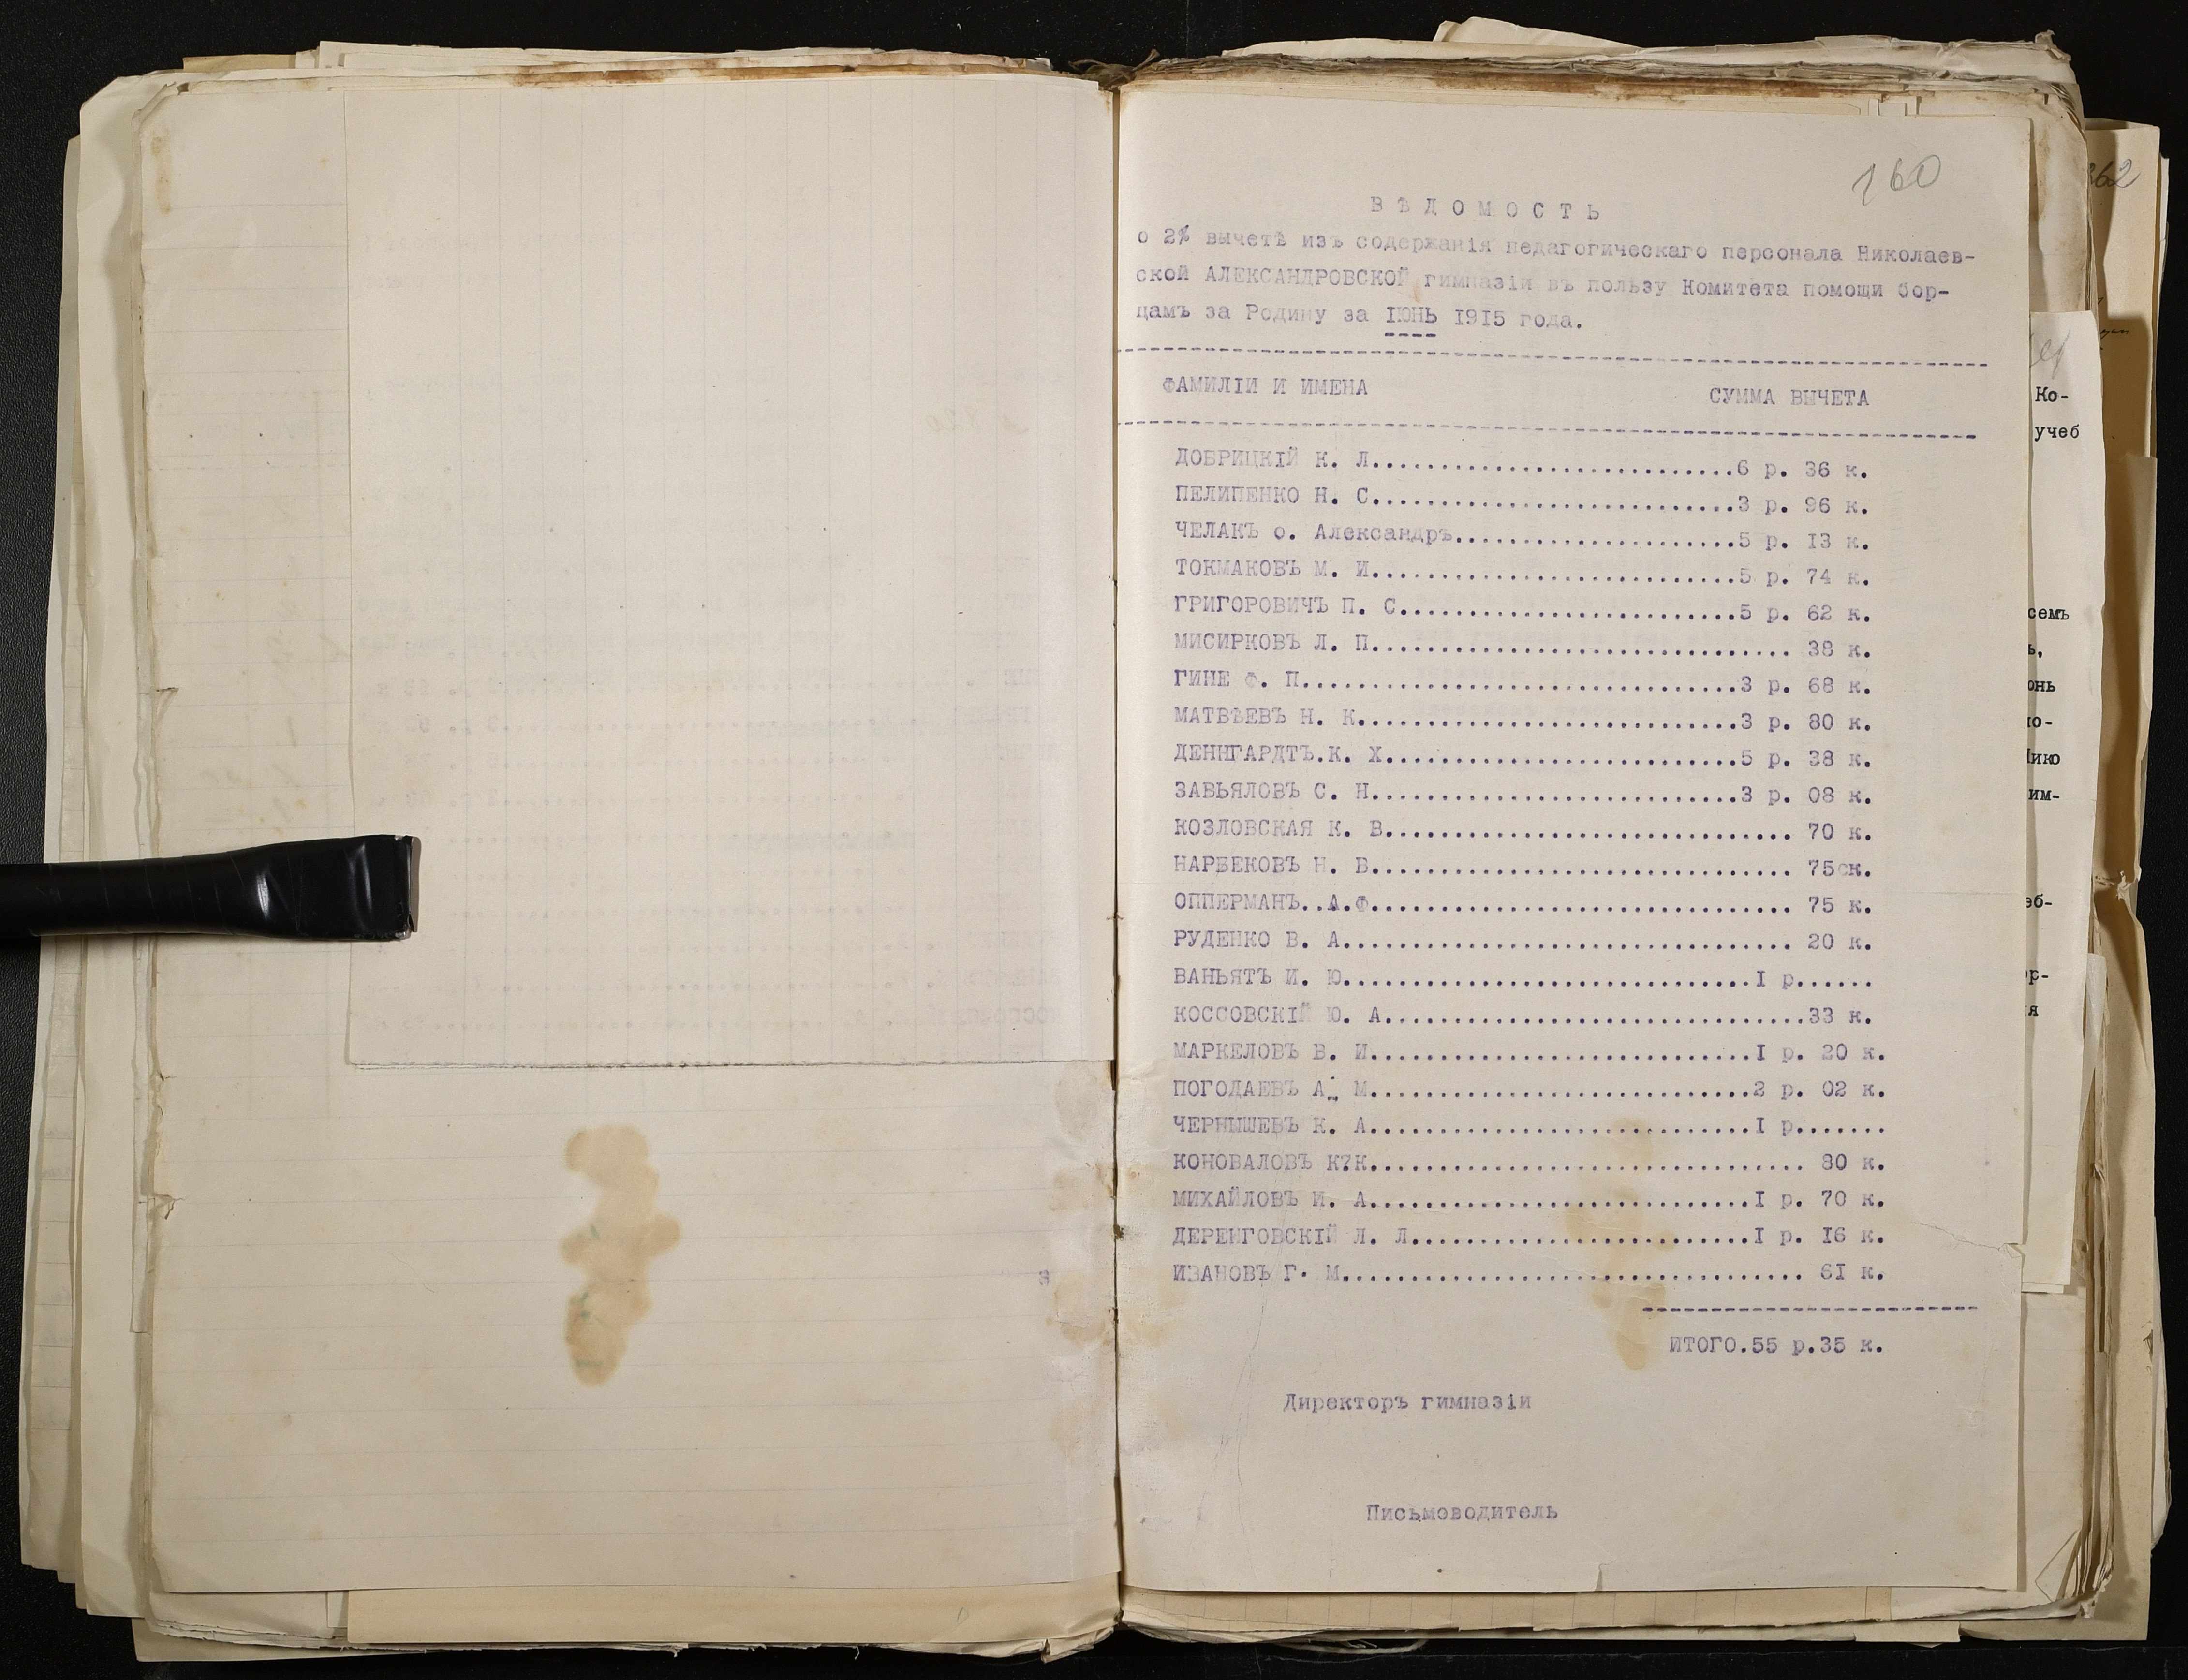 160
362
ВѢДОМОСТЬ
о 2% вычетѣ изъ содержанія педагогическаго персонала Николаев-
ской АЛЕКСАНДРОВСКОЙ гимназіи въ пользу Комитета помощи бор-
цамъ за Родину за IЮНЬ I9I5 года.
ФАМИЛIИ И ИМЕНА СУММА ВЫЧЕТА
ДОБРИЦКIЙ К. Л.............................6 р. 36 к.
ПЕЛИПЕНКО Н. С.............................3 р. 96 к.
ЧЕЛАКЪ о. Александръ.......................5 р. I3 к.
ТОКМАКОВЪ М. И.............................5 р. 74 к.
ГРИГОРОВИЧЪ П. С...........................5 р. 62 к.
МИСИРКОВЪ Л. П............................... 38 к.
ГИНЕ Ф. П..................................3 р. 68 к.
МАТВѢЕВЪ Н. К..............................3 р. 80 к.
ДЕННГАРДТЪ.К. Х............................5 р. 38 к.
ЗАВЬЯЛОВЪ С. Н.............................3 р. 08 к.
КОЗЛОВСКАЯ К. В.............................. 70 к.
НАРБЕКОВЪ Н. В............................... 75ск.
ОППЕРМАНЪ..А.Ф............................... 75 к.
РУДЕНКО В. А................................. 20 к.
ВАНЬЯТЪ И. Ю................................I р......
КОССОВСКIЙ Ю. А...............................33 к.
МАРКЕЛОВЪ В. И..............................I р. 20 к.
ПОГОДАЕВЪ А. М..............................2 р. 02 к.
ЧЕРНЫШЕВЪ К. А..............................I р.......
КОНОВАЛОВЪ К?К................................ 80 к.
МИХАЙЛОВЪ И. А..............................I р. 70 к.
ДЕРЕНГОВСКIЙ Л. Л...........................I р. I6 к.
ИЗАНОВЪ Г. М.................................. 6I к.
ИТОГО.55 р.35 к.
Директоръ гимназіи
Письмоводитель
Ко-
учеб
семь
ь,
онь
о-
ико
им-
еб-
ор-
я